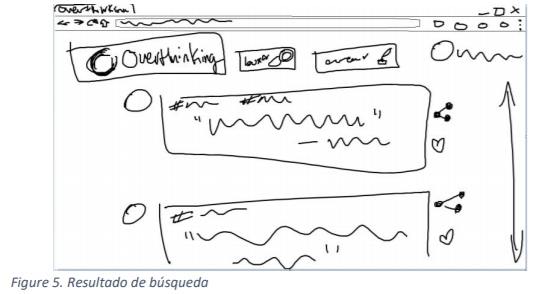 Overthinking
Overthinking
buscar
#
#
"
"
—
#
"
"
Figure 5. Resultado de búsqueda